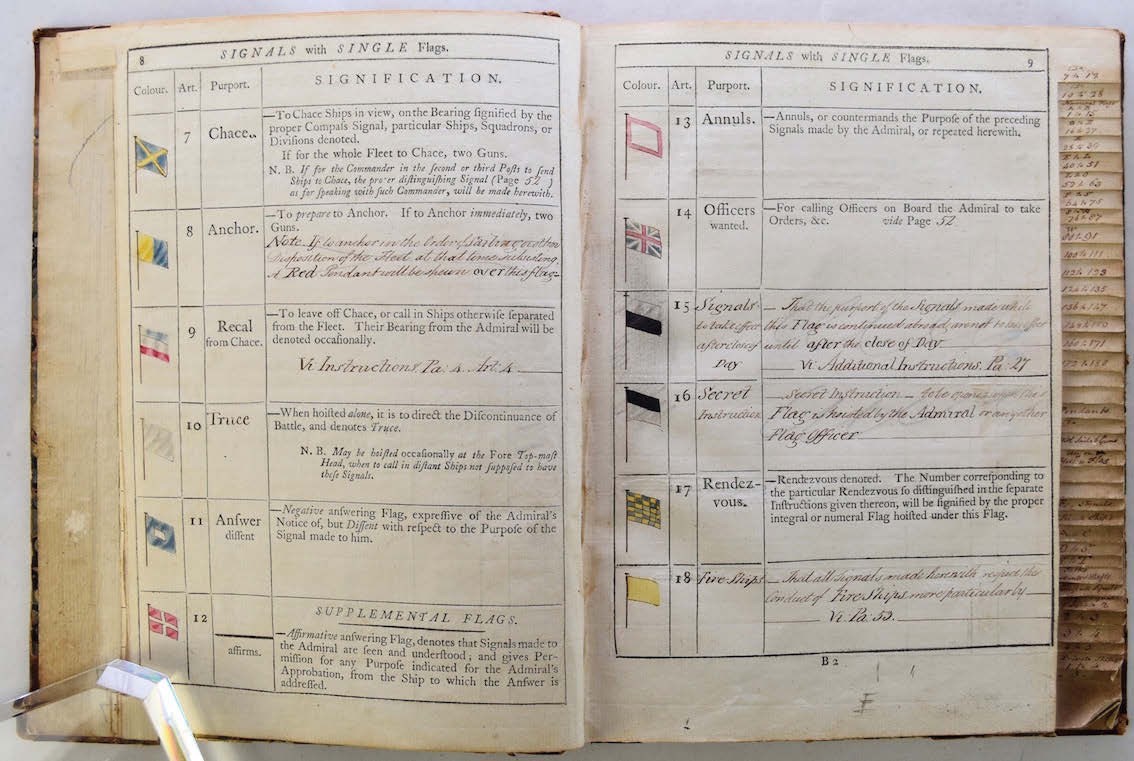 8
SIGNALS with SINGLE Flags.
Colour. Art. Purport. SIGNIFICATION.
7 Chace.
—To Chace Ships in view, on the Bearing ſignified by the
proper Compaſs Signal, particular Ships, Squadrons, or
Diviſions denoted.
If for the whole Fleet to Chace, two Guns.
N. B. If for the Commander in the second or third Poſts to ſend
Ships to Chace, the proper diſtinguiſhing Signal (Page 52 )
as for ſpeaking with ſuch Commander, will be made herewith.
8 Anchor.
—To prepare to Anchor. If to Anchor immediately, two
Guns.
Note If to anchor in the Order of Sailing or other
Disposition of the Fleet at that time subsisting.
A Red Pendant will be shewn over this flag
9 Recal
from Chace.
—To leave off Chace, or call in Ships otherwiſe ſeparated
from the Fleet. Their Bearing from the Admiral will be
denoted occaſionally.
Vi Instructions. Pa. 4. Art. 4
10 Truce
—When hoiſted alone, it is to direct the Diſcontinuance of
Battle, and denotes Truce.
N. B. May be hoiſted occaſionally at the Fore Top-maſt
Head, when to call in diſtant Ships not ſuppoſed to have
theſe Signals.
11 Anſwer
diſſent
—Negative anſwering Flag, expreſſive of the Admiral's
Notice of, but Diſſent with reſpect to the Purpoſe of the
Signal made to him.
12
affirms.
SUPPLEMENTAL FLAGS.
—Affirmative anſwering Flag, denotes that Signals made to
the Admiral are ſeen and underſtood; and gives Per-
miſſion for any Purpoſe indicated for the Admiral's
Approbation, from the Ship to which the Anſwer is
addreſſed.
SIGNALS with SINGLE Flags.
9
Colour. Art. Purport. SIGNIFICATION.
13 Annuls.
—Annuls, or countermands the Purpoſe of the preceding
Signals made by the Admiral, or repeated herewith.
14 Officers
wanted.
—For calling Officers on Board the Admiral to take
Orders, &c. vide Page 52
15 Signals
to take effect
after close of
Day
— That the purport of the Signals made while
this Flag is continued abroad, are not to have effect
until after the close of Day
Vi Additional Instructions. Pa. 27
16 Secret
Instruction
— Secret Instruction — to be opened when this
Flag is hoisted by the Admiral or any other
Flag Officer
17 Rendez-
vous.
—Rendezvous denoted. The Number correſponding to
the particular Rendezvous ſo diſtinguiſhed in the ſeparate
Inſtructions given thereon, will be ſignified by the proper
integral or numeral Flag hoiſted under this Flag.
18 Fire Ships
— That all Signals made herewith respect the
Conduct of Fire Ships more particularly
Vi. Pa. 53.
B 2